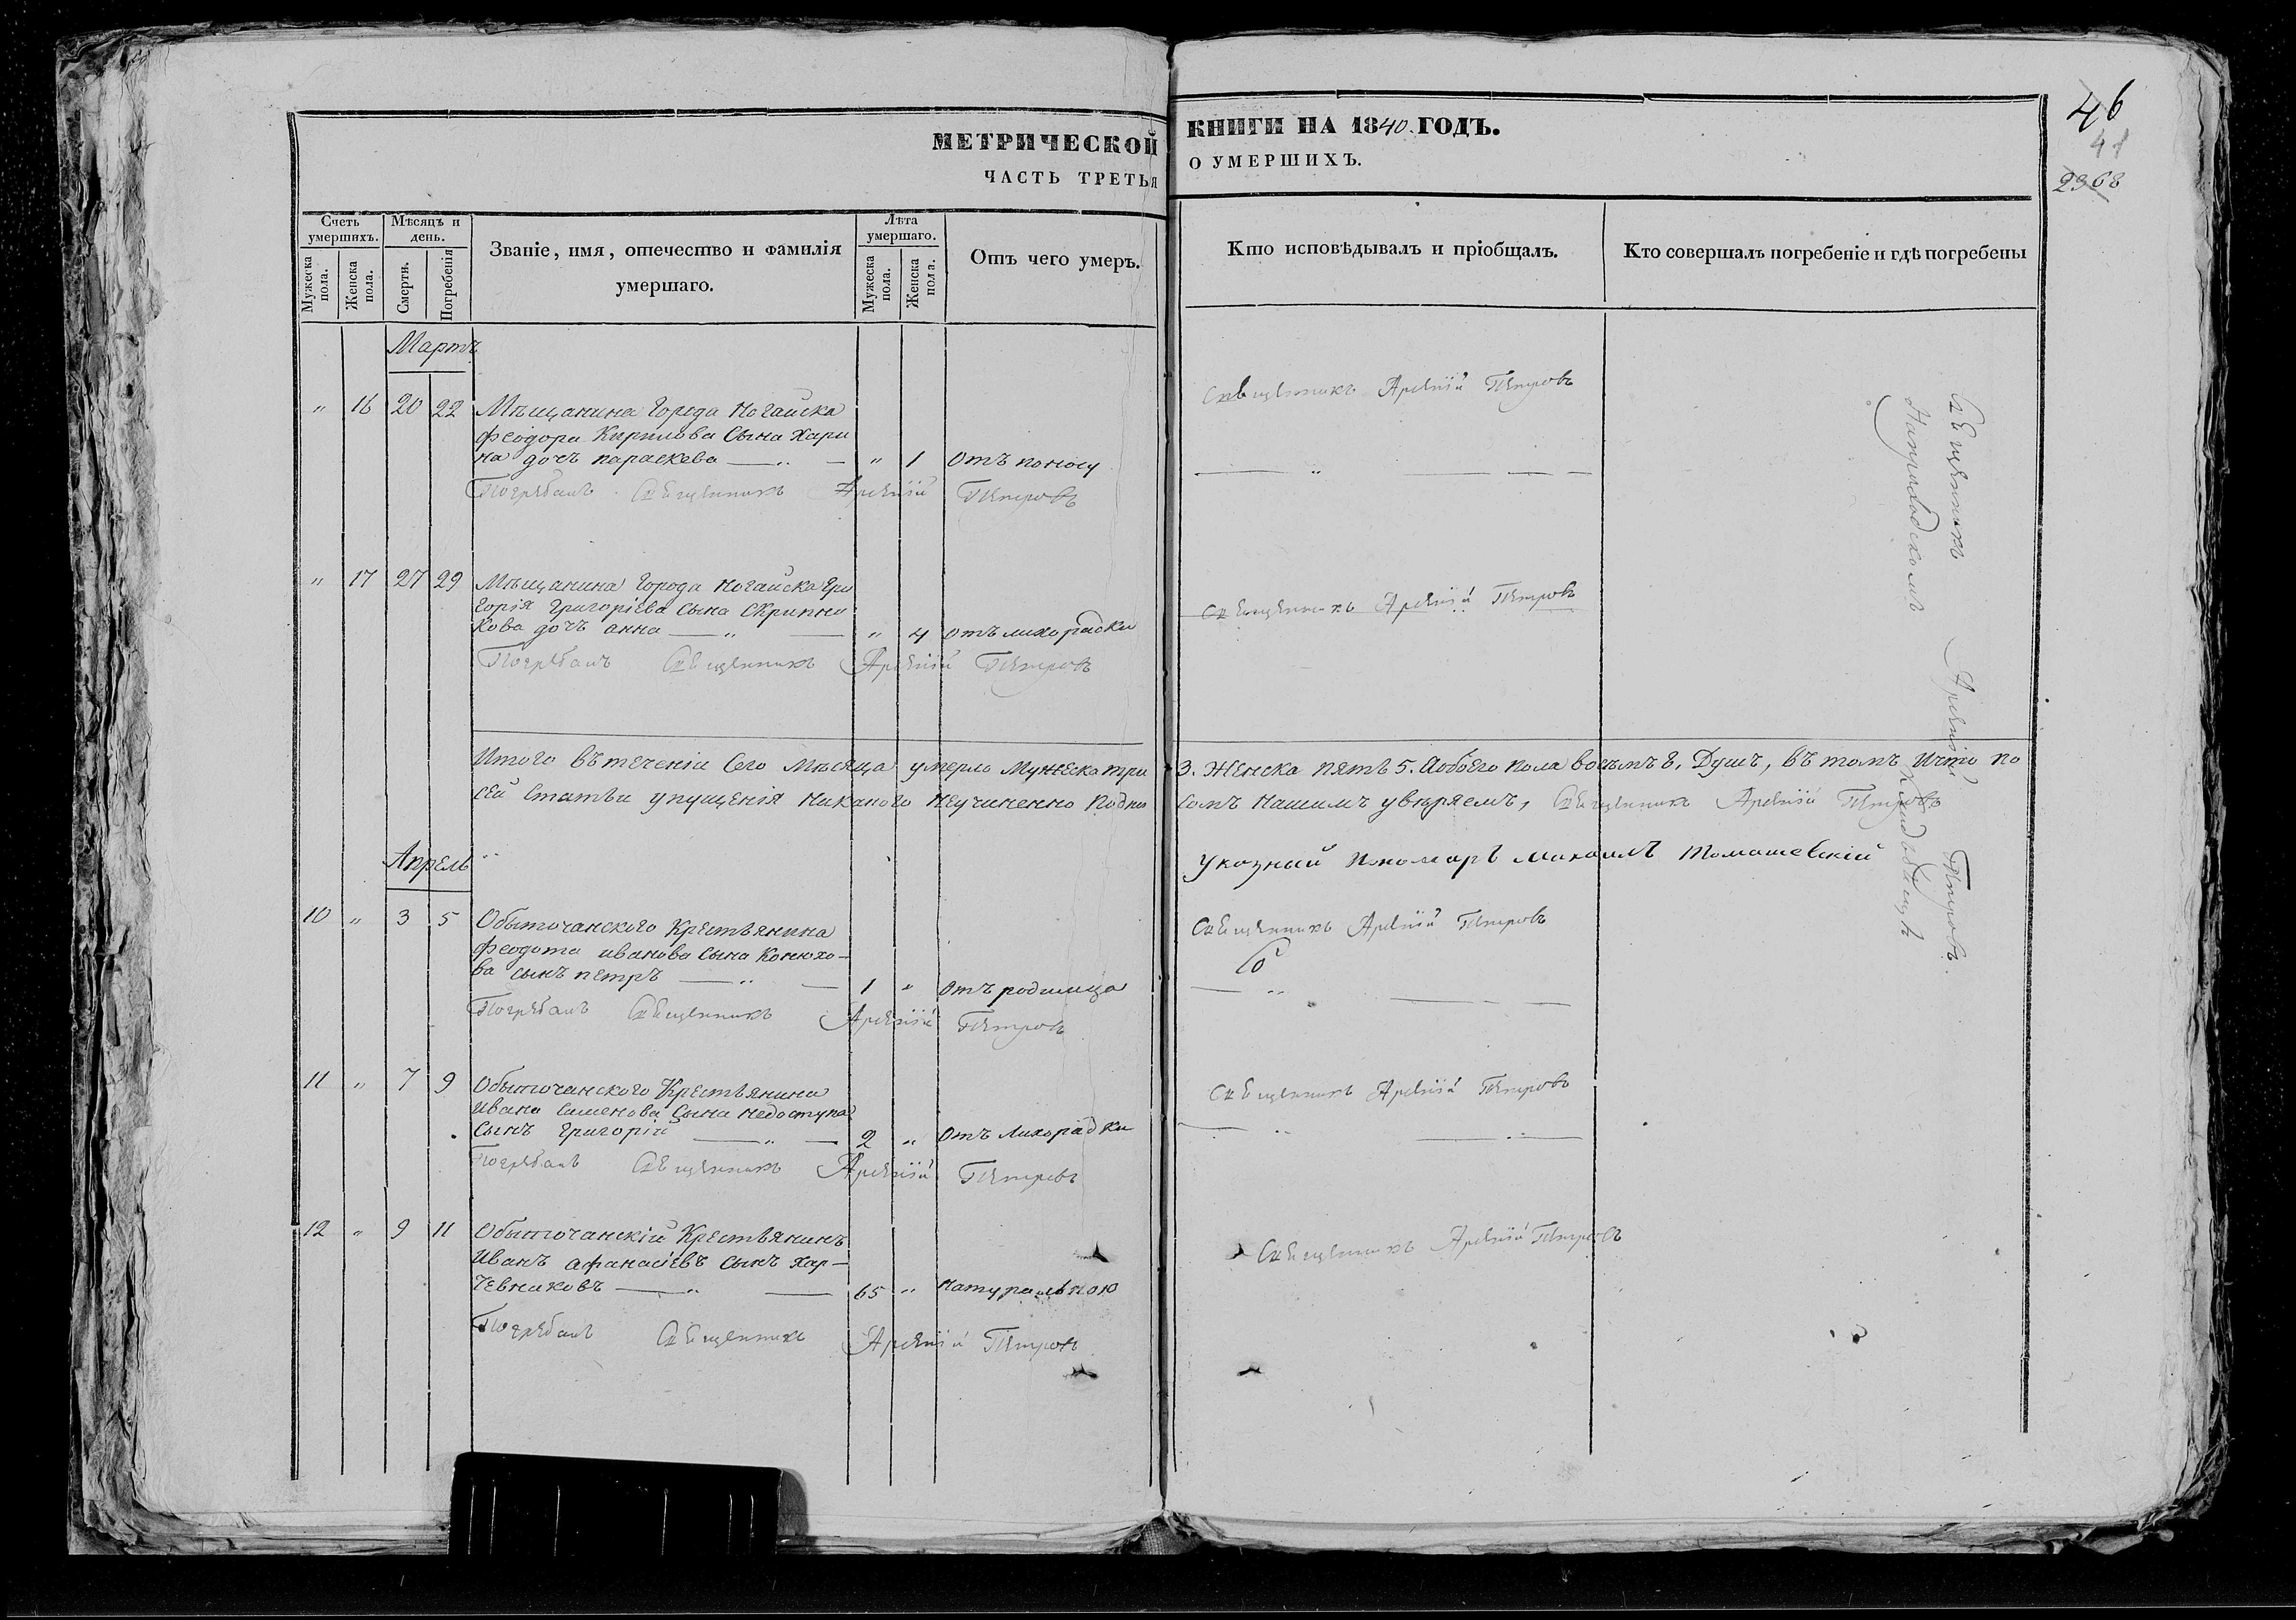 МЕТРИЧЕСКОЙ КНИГИ НА 1840. ГОДЪ.
ЧАСТЬ ТРЕТЬЯ О УМЕРШИХЪ.
46
41
2368
Счетъ умершихъ.
Мужеска пола.
Женска пола.
Мѣсяцъ и день.
Смерти.
Погребенія
Званіе, имя, отечество и фамилія умершаго.
Лѣта умершаго.
Мужеска пола.
Женска пола.
Отъ чего умеръ.
Кто исповѣдывалъ и пріобщалъ.
Кто совершалъ погребеніе и гдѣ погребены
Мартъ
" 16 20 22 Мѣщанина Города Ногайска
Феодора Кирилова Сына Хари
на дочъ параскева — " — " 1 отъ поносу
Погребалъ Священникъ Арсеній Петровъ
Священникъ Арсеній Петровъ
" 17 27 29 Мѣщанина Города Ногайска Гри
горія Григоріева Сына Скрипни
кова дочъ анна — " — " 4 отъ лихорадки
Погребалъ Священникъ Арсеній Петровъ
Священникъ Арсеній Петровъ
Итого въ теченіи Сего Мѣсяца умерло Мужеска три 3. Женска пять 5. Аобоего пола восьмъ 8. Душъ, въ томъ Ичто по
сей Статьи упущенія Никакого Неучиненно Подпи сомъ Нашимъ увѣряемъ, Священникъ Арсеній Петровъ
Указный Пономарь Михаилъ Томашевскій
Апрель
10 " 3 5 Обыточанского Крестьянина
Феодота иванова Сына Конюхо-
ва Сынъ петръ — " — 1 " Отъ родимца
Погребалъ Священникъ Арсеній Петровъ
Священникъ Арсеній Петровъ
11 " 7 9 Обыточанского Крестьянина
Ивана Семенова Сына Недоступа
Сынъ Григорій — " — 2 " Отъ Лихорадки
Погребалъ Священникъ Арсеній Петровъ
Священникъ Арсеній Петровъ
12 " 9 11 Обыточанскій Крестьянинъ
Иванъ афанасіевъ Сынъ Хар-
чевниковъ — " — 65 " Натуральною
Погребалъ Священникъ Арсеній Петровъ
Священникъ Арсеній Петровъ
Священникъ Арсеній Петровъ
На приходскомъ Кладбищѣ